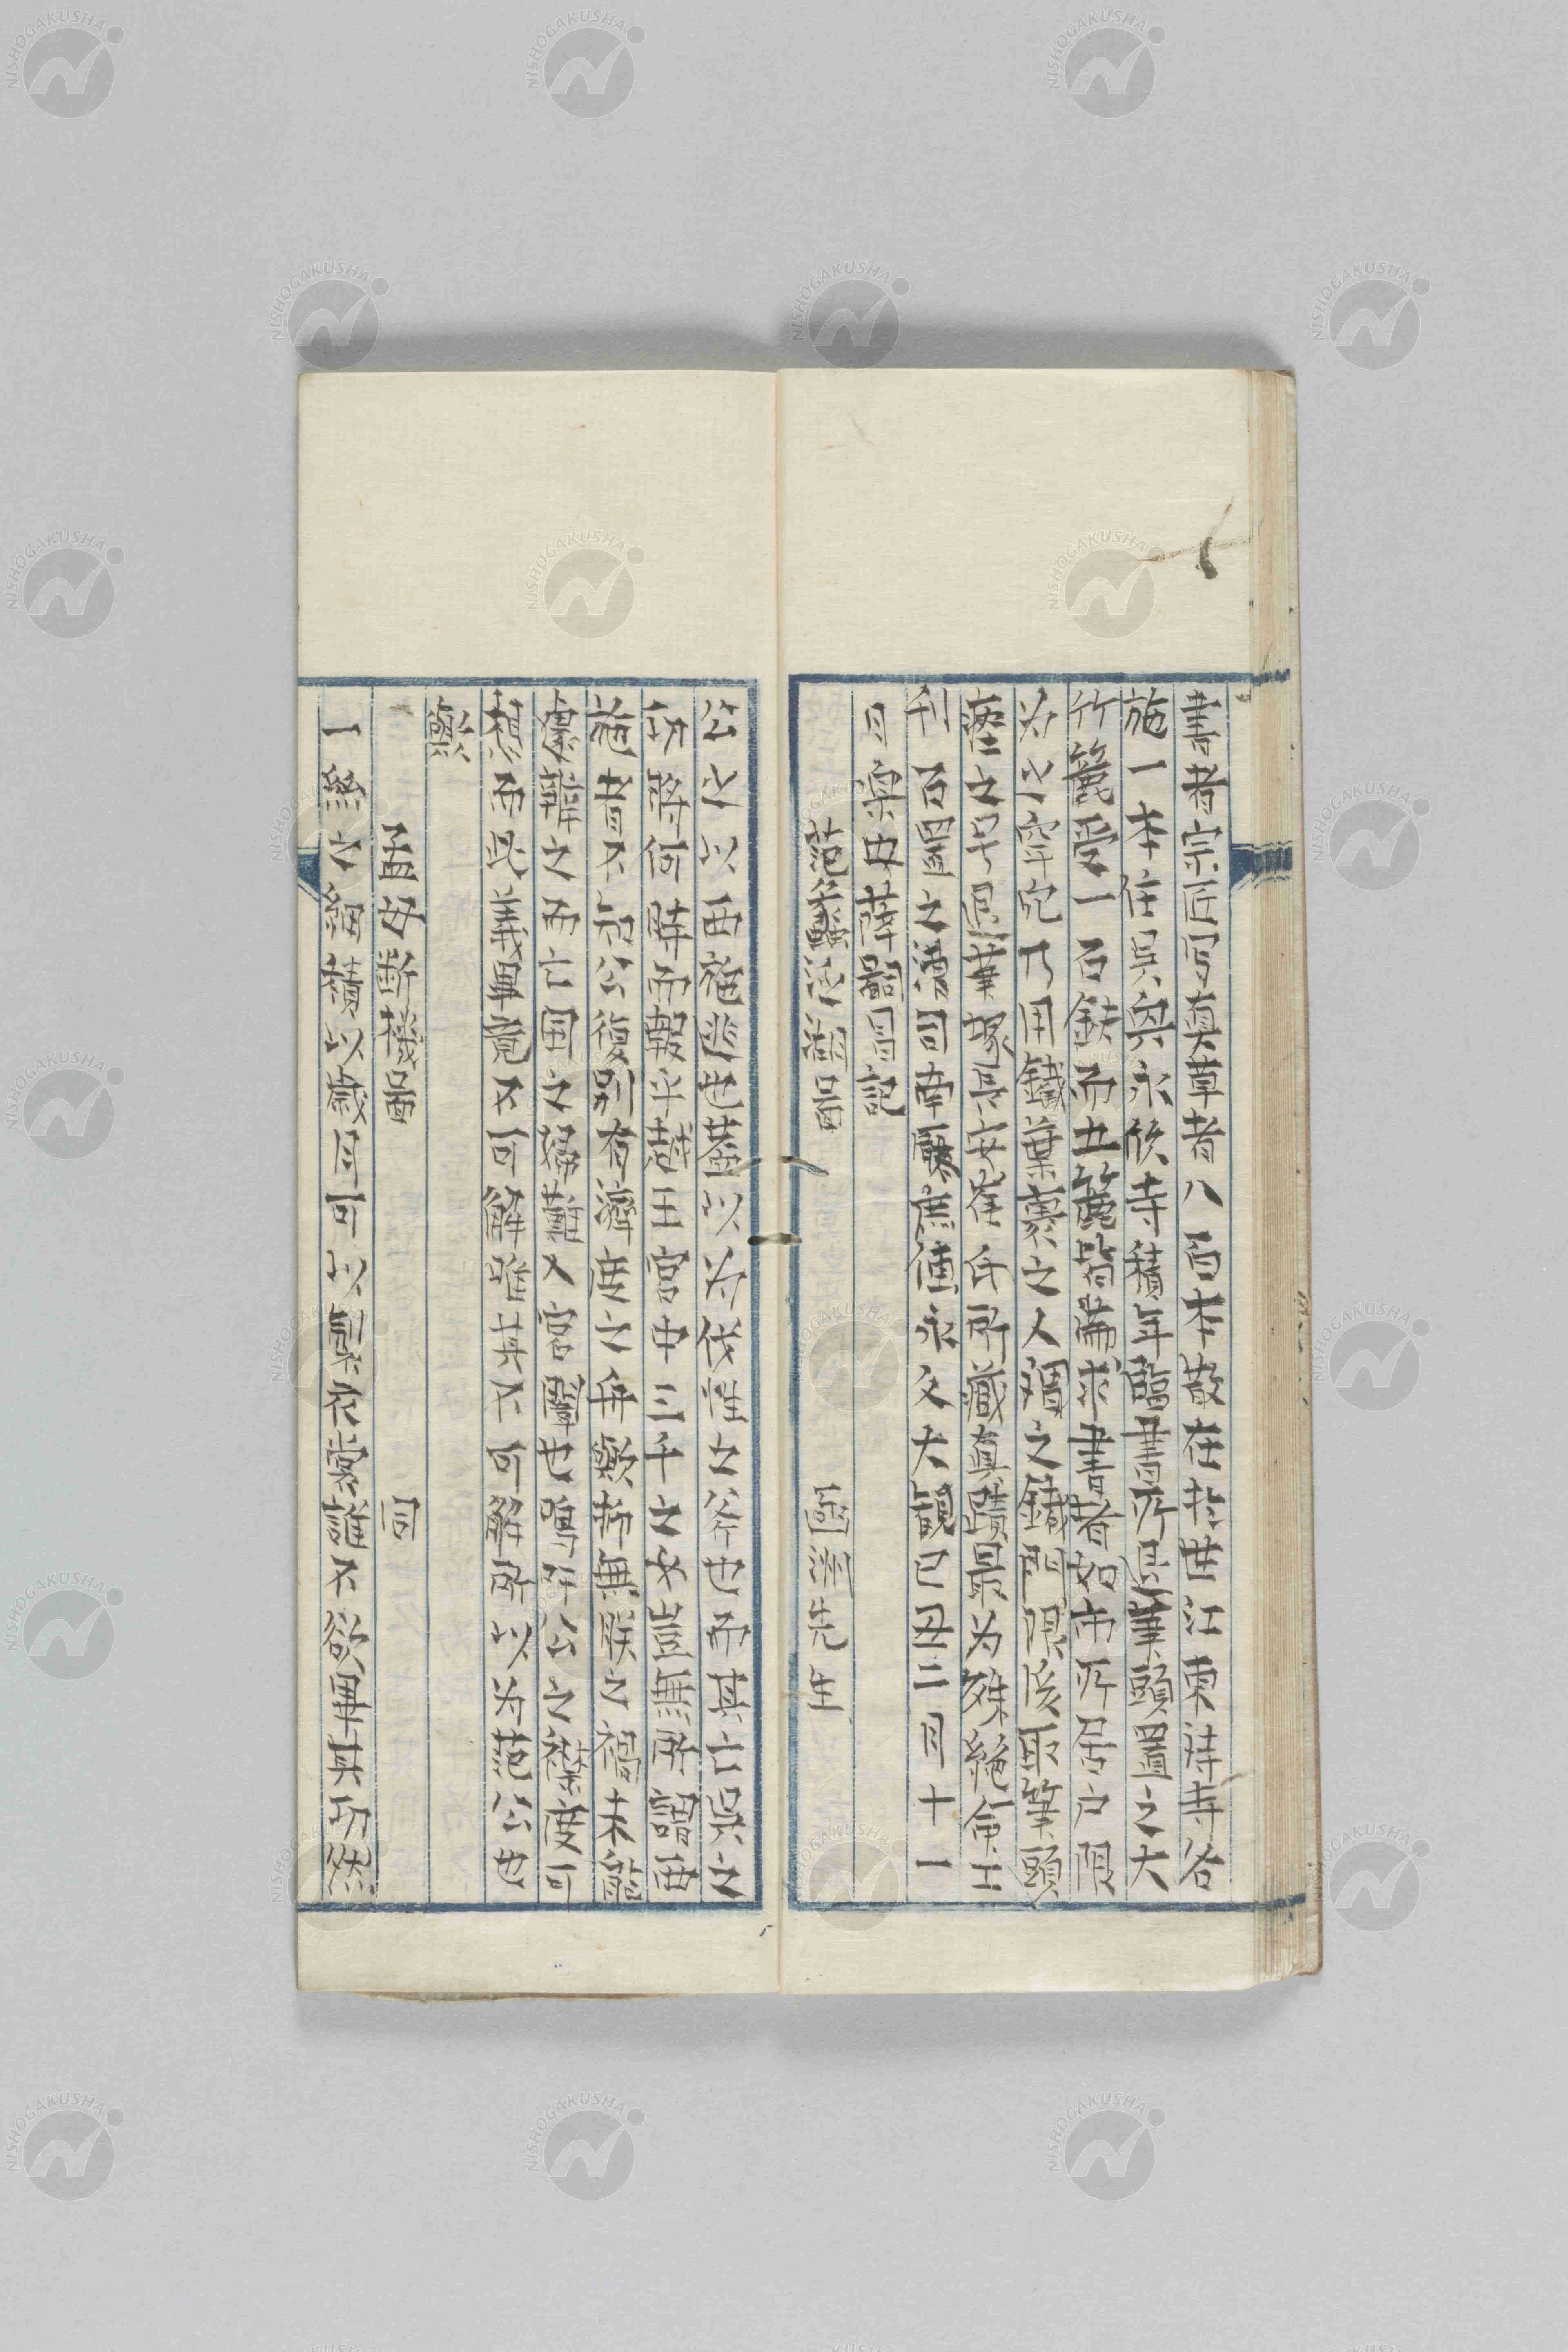 書者宗匠写真草者八百本散在於世江東諸寺各
施一本住吳興永欣寺積年臨書所退筆頭置之大
竹簏受一石餘而五簏皆滿求書者如市所居户限
为之穿宂乃用鐵葉裹之人謂之鐵門限後取筆頭
瘞之号退筆塚長安崔氏所藏真蹟最为殊絶命工
刊石置之漕司南廳庶傳永久大観己丑二月十一
日樂安薛嗣昌記
范蠡泛湖圖 函洲先生
公之以西施逃也蓋以为伐性之斧也而其亡吳之
功將何時而報乎越王宮中三千之女豈無所謂西
施者不知公復別有濟度之舟歟抑無朕之禍未能
遽辨之而亡国之禍難入宮闈也嗚呼公之襟度可
想而此義畢竟不可解唯其不可解所以为范公也
歟
孟母断機圖 同
一絲之細積以歲月可以製衣裳誰不欲畢其功然